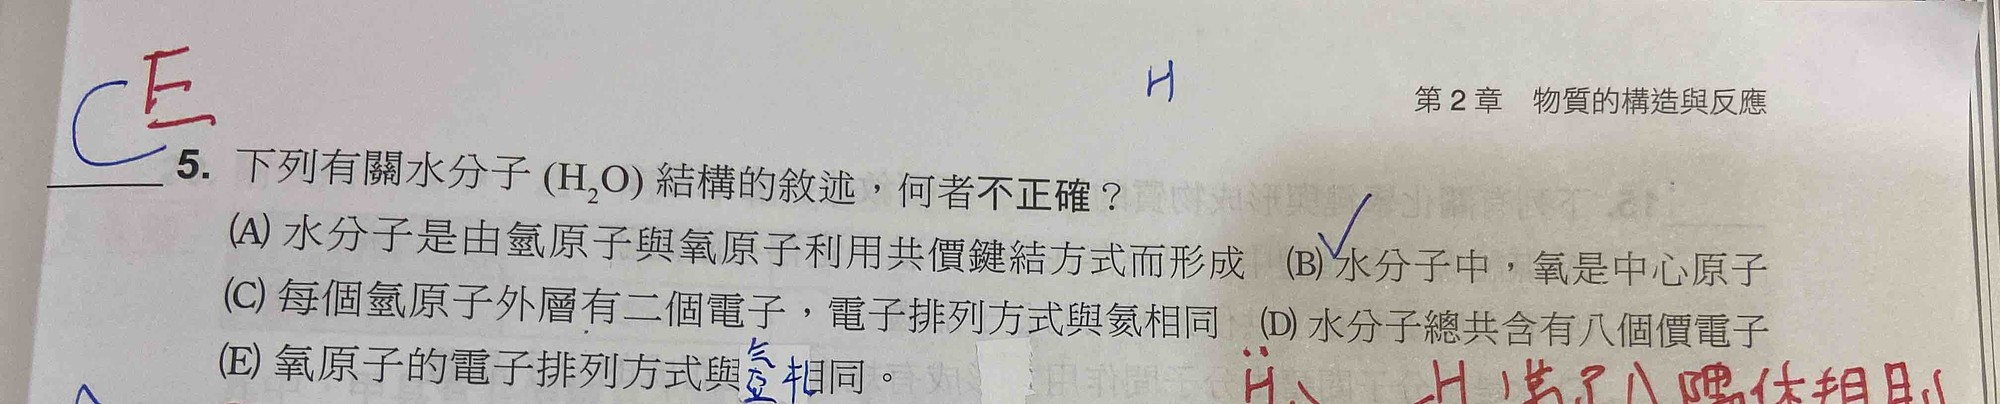 C E
H
第 2 章 物質的構造與反應
5. 下列有關水分子 (H₂O) 結構的敘述，何者不正確？
(A) 水分子是由氫原子與氧原子利用共價鍵結方式而形成 (B) 水分子中，氧是中心原子
(C) 每個氫原子外層有二個電子，電子排列方式與氦相同 (D) 水分子總共含有八個價電子
(E) 氧原子的電子排列方式與氬相同。